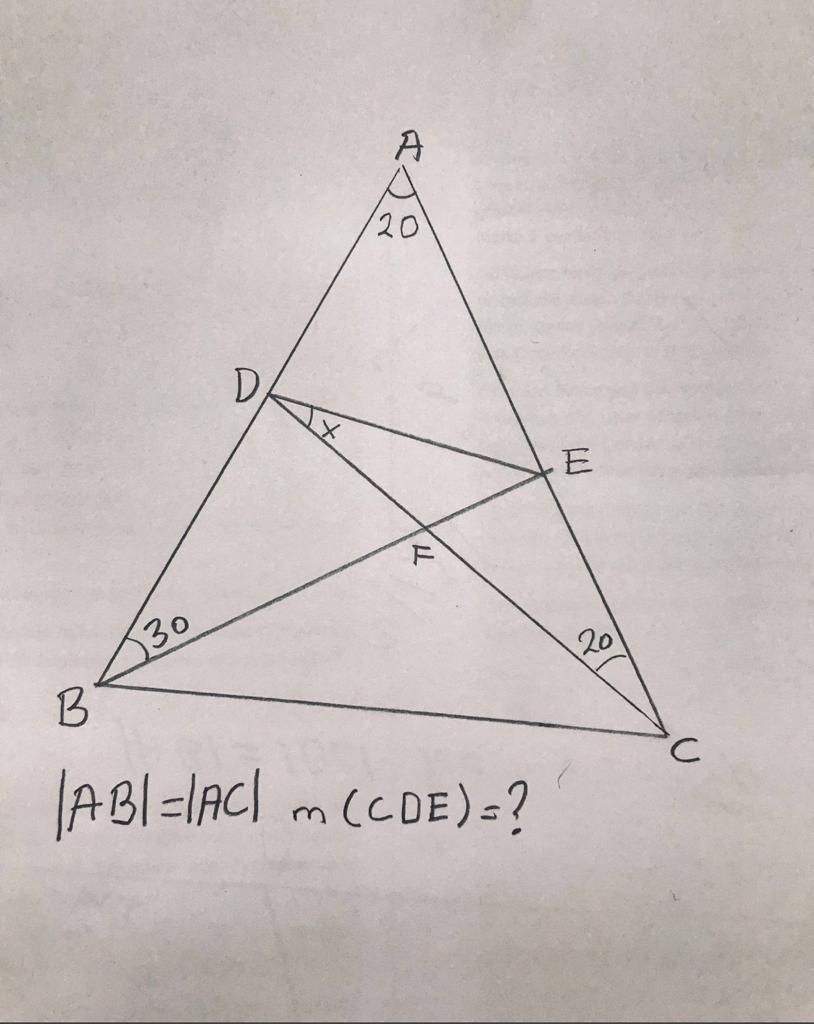 A
20
D
x
E
F
30
20
B
C
|AB|=|AC| m(CDE)=?